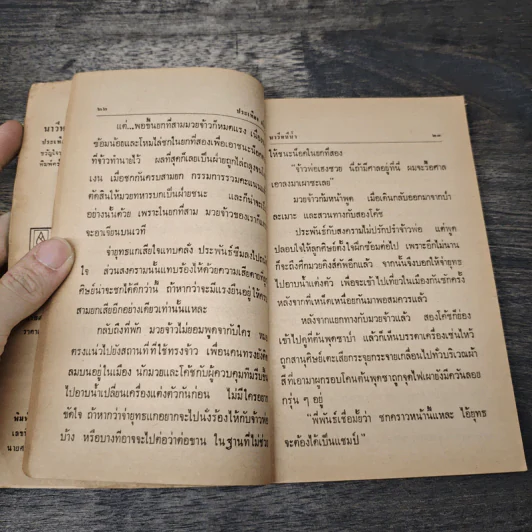 นาวี
ประพั
ขวัญใจ
พิมพ์ครั้
ราคา
พิมพ์
เลขที่
นายศ
๒๒
แต่...พอขึ้นยกที่สามมวยจ้าวก็หมดแรง เนื่อง
ซ้อมน้อยและโหมไล่ชกในยกที่สองเพื่อเอาชนะน๊อค
ที่จ้าวทำนายไว้ ผลที่สุดก็เลยเป็นฝ่ายถูกไล่ถลุง
เงน เมื่อชกกันครบสามยก กรรมการรวมคะแนน
ตัดสินให้มวยทหารบกเป็นฝ่ายชนะ และก็น่าจะเป็น
อย่างนั้นด้วย เพราะในยกที่สาม มวยจ้าวของเรา
จะอาเจียนบนเวที
จ่ายุทธแกเสียใจแทบคลั่ง ประพันธ์ซึมลงไป
ใจ ส่วนสงครามนั้นแทบร้องไห้ด้วยความเสียดาย
ศิษย์น่าจะชกได้ดีกว่านี้ ถ้าหากว่าจะมีแรงยืนอยู่ให้
สามยกเสียอีกอย่างเดียวเท่านั้นแหละ
กลับถึงที่พัก มวยจ้าวไม่ยอมพูดจากับใคร
ครงแน่วไปยังสถานที่ที่ใช้ทรงจ้าว เพื่อนคนทรงยัง
ลมบนอยู่ในเมือง นักมวยและโค้ชกับผู้ควบคุมทีมรีบ
ไปอาบน้ำเปลี่ยนเครื่องแต่งตัวกันก่อน ไม่มีใครอยาก
ขัดใจ ถ้าหากว่าจ่ายุทธแกอยากจะไปนั่งร้องไห้กับจ้าว
บ้าง หรือบางทีอาจจะไปต่อว่าต่อขาน ในฐานที่ไม่ช่วย
นาวีทมิฬ
๒๓
ให้ชนะน๊อคในยกที่สอง
“จ้าวพ่อเฮงซวย นี่ถ้ามีศาลอยู่ที่นี่ ผมจะวื้อศาล
เอาลงมาเผาซะเลย”
มวยจ้าวก้มหน้าพูด เมื่อเดินกลับออกมาจากป่า
ละเมาะ และสวนทางกับสองโค้ช
ประพันธ์กับสงครามไม่ปริปากว่าจ้าวพ่อ แต่พูด
ปลอบใจให้ลูกศิษย์ตั้งใจฝึกซ้อมต่อไป เพราะอีกไม่นาน
ก็จะถึงศึกมวยคิงส์คัพอีกแล้ว จากนั้นจึงบอกให้จ่ายุทธ
ไปอาบน้ำแต่งตัว เพื่อจะเข้าไปเที่ยวในเมืองกันซักครั้ง
หลังจากที่เหน็ดเหนื่อยกันมาพอสมควรแล้ว
หลังจากแยกทางกับมวยจ้าวแล้ว สองโค้ชก็ย่อง
เข้าไปดูที่ต้นพุดซาป่า แล้วก็เห็นบรรดาเครื่องเซ่นไหว้
ถูกสานุศิษย์เตะเสียกระจุยกระจายเกลื่อนไปทั่วบริเวณผ้า
สีที่เอามาผูกรอบโคนต้นพุดซาถูกจุดไฟเผายังมีควันลอย
กรุ่น ๆ อยู่
“พี่พันธ์เชื่อมั้ยว่า ชกคราวหน้านี้แหละ ไอ้ยุทธ
จะต้องได้เป็นแชมป์”